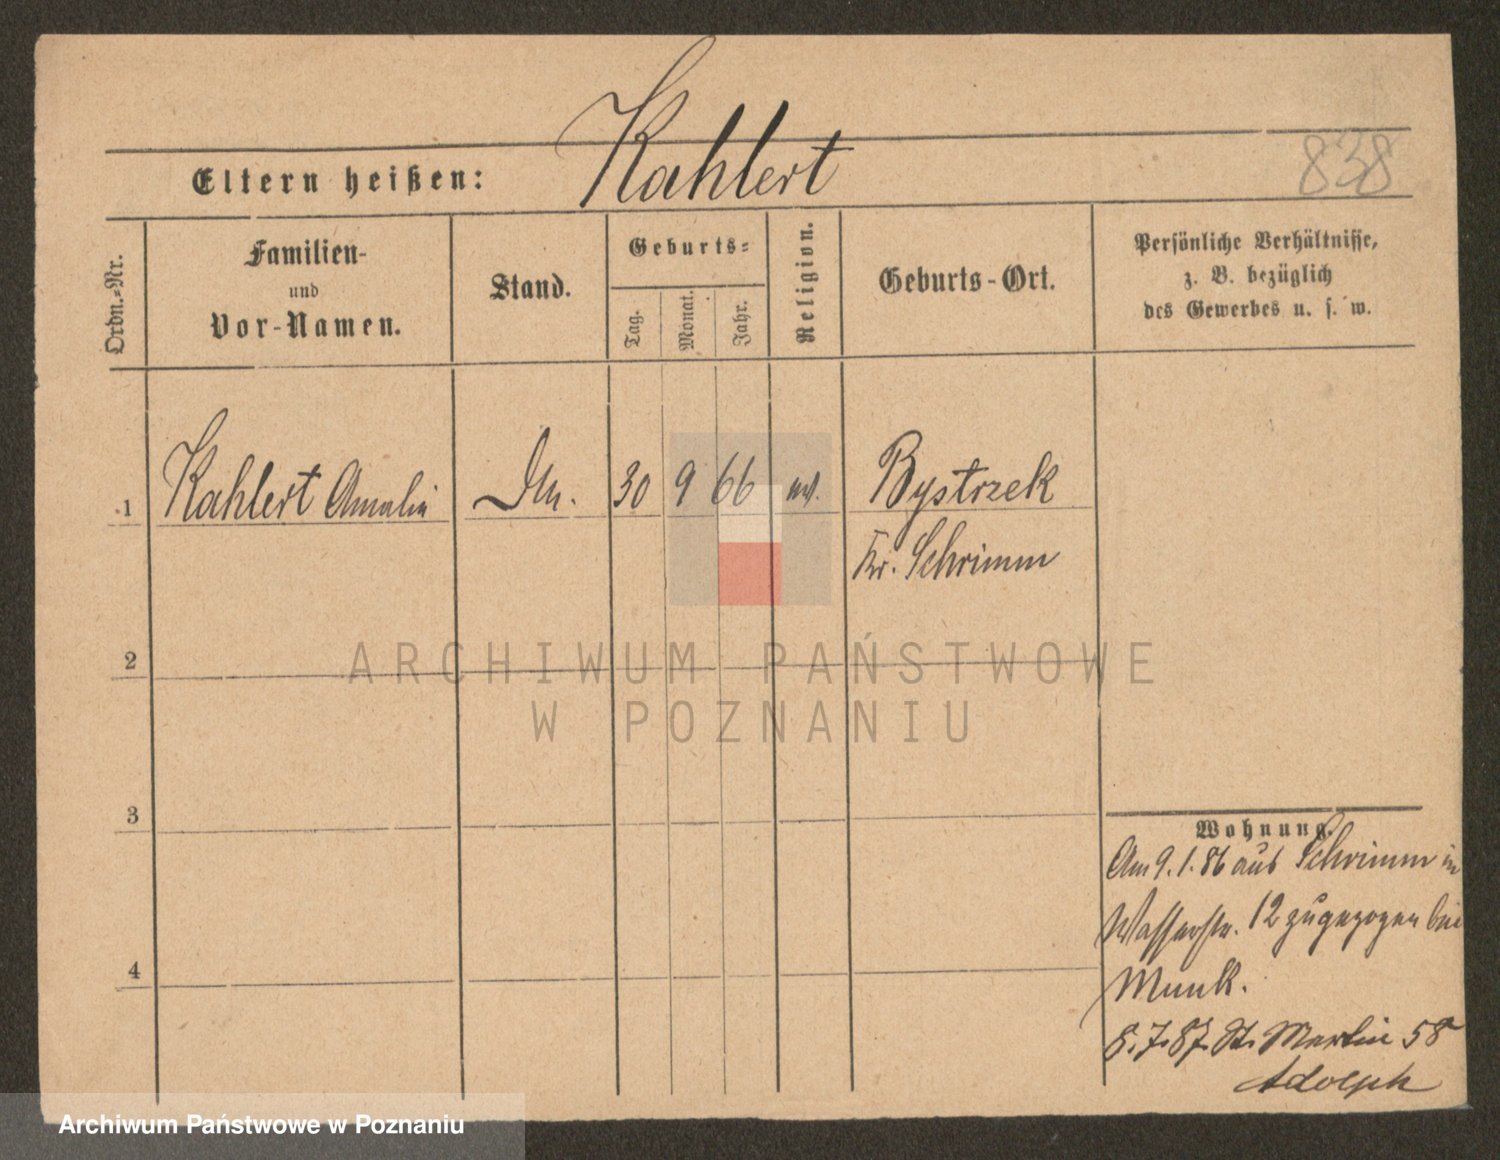 Kahlert
838
Eltern heißen:
Ordn.-Nr.
Familien-
und
Vor-Namen.
Stand.
Geburts-
Tag.
Monat.
Jahr.
Religion.
Geburts-Ort.
Persönliche Verhältnisse,
z. B. bezüglich
des Gewerbes u. s. w.
1 Kahlert Amalie 30 9 66 Bystrzek
Kr. Schrimm
2
ARCHIWUM PAŃSTWOWE
W POZNANIU
3
Wohnung.
Am 9. 1. 86 aus Schrimm in
Wasserstr. 12 zugezogen bei
Munk.
4
8. 7. 87. St. Martin 58
Adolph
Archiwum Państwowe w Poznaniu